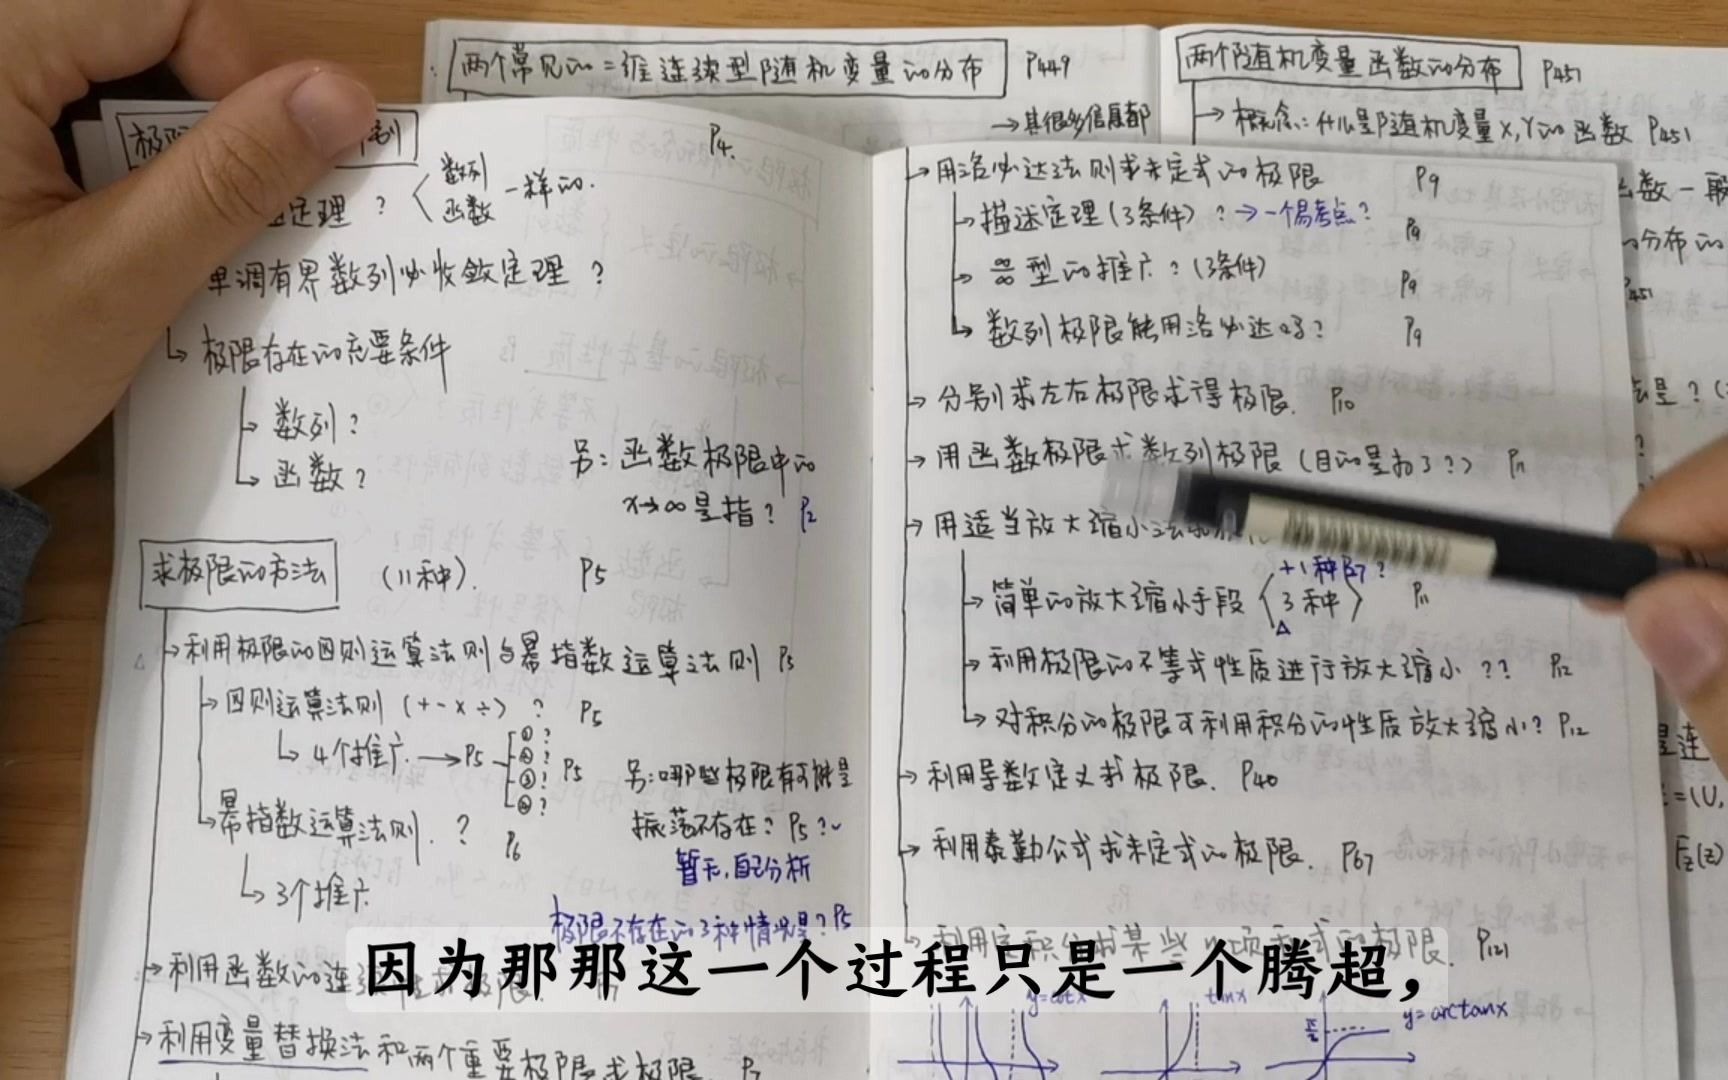 两个常见的二维连续型随机变量的分布 P449
→其很多信息都
两个随机变量函数的分布 P451
→概念:什么是随机变量X,Y的函数 P451
函数一般
分布的
P451
P4.
定理? 数列 函数 一样的.
单调有界数列必收敛定理?
极限存在的充要条件
→数列?
→函数?
另:函数极限中的
x→∞是指? P2
求极限的方法 (11种). P5
→利用极限的四则运算法则与幂指数运算法则 P5
→四则运算法则(+-×÷)? P5
4个推广→P5 ①? ②? ③? ④? P5
另:哪些极限有可能是
振荡不存在?P5?
暂无,自己分析
→幂指数运算法则.? P6
→3个推广
极限不存在的3种情况是?P5
→利用函数的连
→利用变量替换法和两个重要极限求极限 P7
→用洛必达法则求未定式的极限 P9
→描述定理(3条件)?→一个易考点? P9
→∞/∞型的推广?(3条件) P9
→数列极限能用洛必达吗? P9
→分别求左右极限求得极限. P10
→用函数极限求数列极限(目的是为了?) P11
→用适当放大缩小法
→简单的放大缩小手段 +1种 3种 P11
→利用极限的不等式性质进行放大缩小?? P12
→对积分的极限可利用积分的性质放大缩小? P12
→利用导数定义求极限. P40
→利用泰勒公式求未定式的极限. P67
极限. P121
y=cotx
tanx
π/2
y=arctanx
F_Z(z)
因为那那这一个过程只是一个腾超,